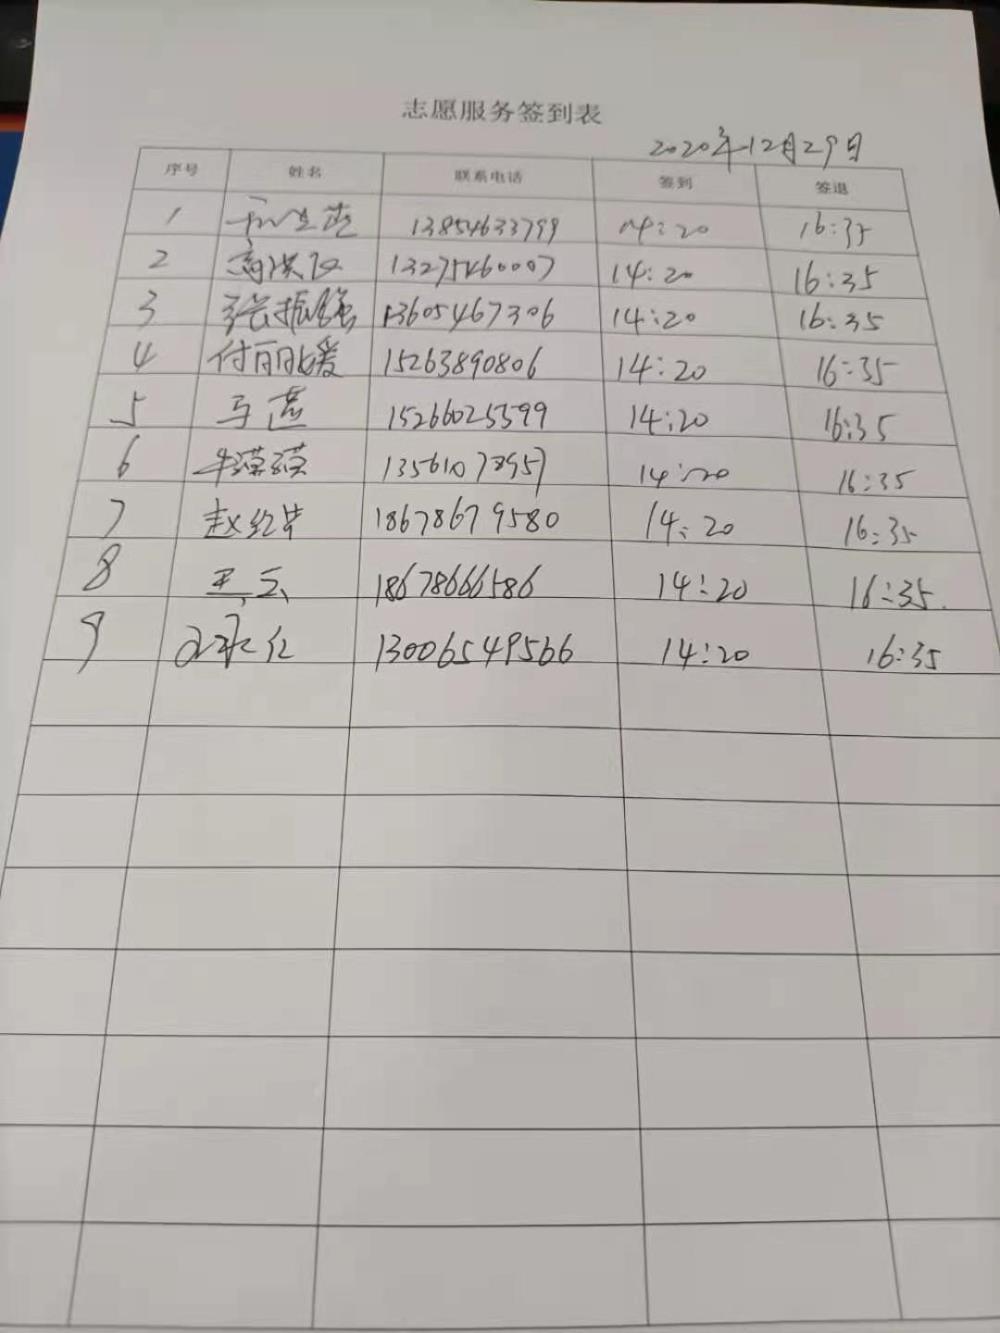 志愿服务签到表
2020年12月29日
序号 姓名 联系电话 签到 签退
1 13854633799 14:20 16:35
2 13275460007 14:20 16:35
3 张振强 13605467306 14:20 16:35
4 付丽媛 15263890806 14:20 16:35
5 马 15266025599 14:20 16:35
6 牛 14:20 16:35
7 赵红 18678679580 14:20 16:35
8 王云 18678666586 14:20 16:35
9 13006549566 14:20 16:35